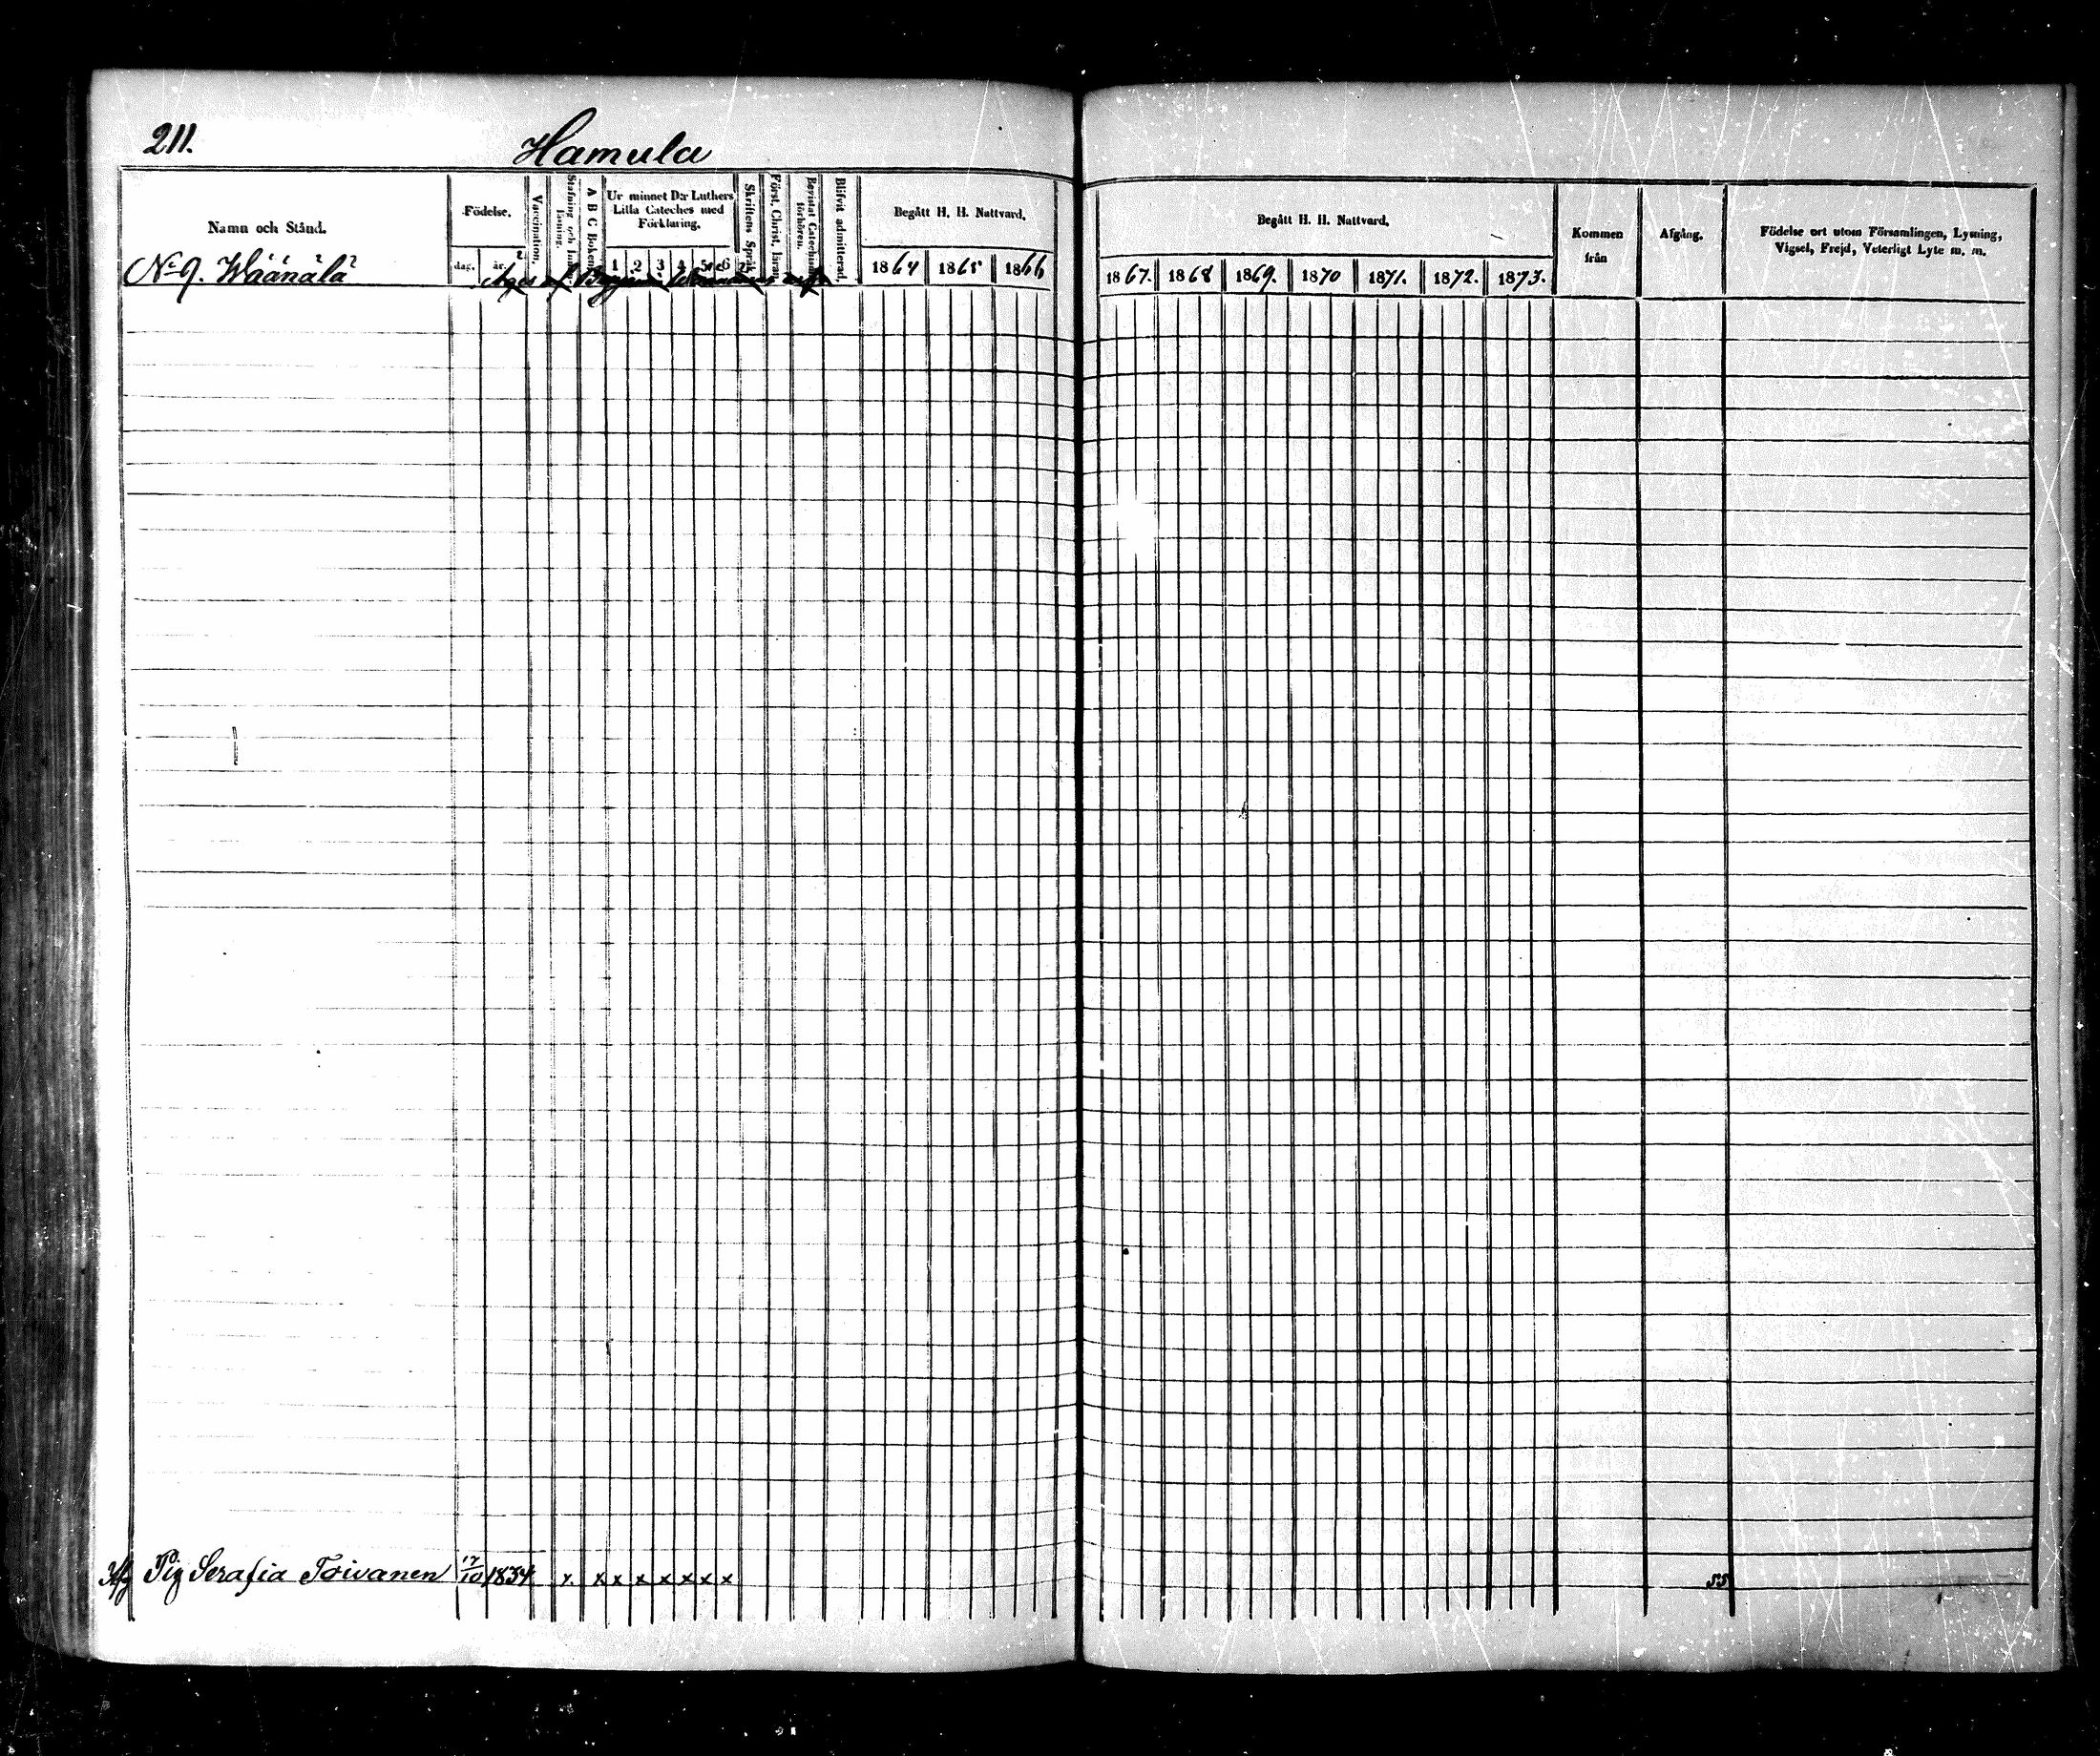 211. Hamula
Namn och Stånd.
Födelse.
dag. år.
Vaccination.
Stafning och Innanläsning.
A B C Boken
Ur minnet D:r Luthers Lilla Cateches med Förklaring.
1 2 3 4 5 6
Skriftens Språk
Först. Christ. läran
Bevistat Catechismi förhören.
Blifvit admitterad.
Begått H. H. Nattvard.
1864 1865 1866
Begått H. H. Nattvard.
1867. 1868 1869. 1870 1871. 1872. 1873.
Kommen från
Afgång.
Födelse ort utom Församlingen, Lysning,
Vigsel, Frejd, Veterligt Lyte m. m.
No 9. Wäänälä
Afg Pig Serafia Toivanen 17/10 1834 x x x x x x x x 55